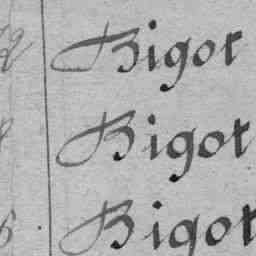 Bigot
Bigot
Bigot